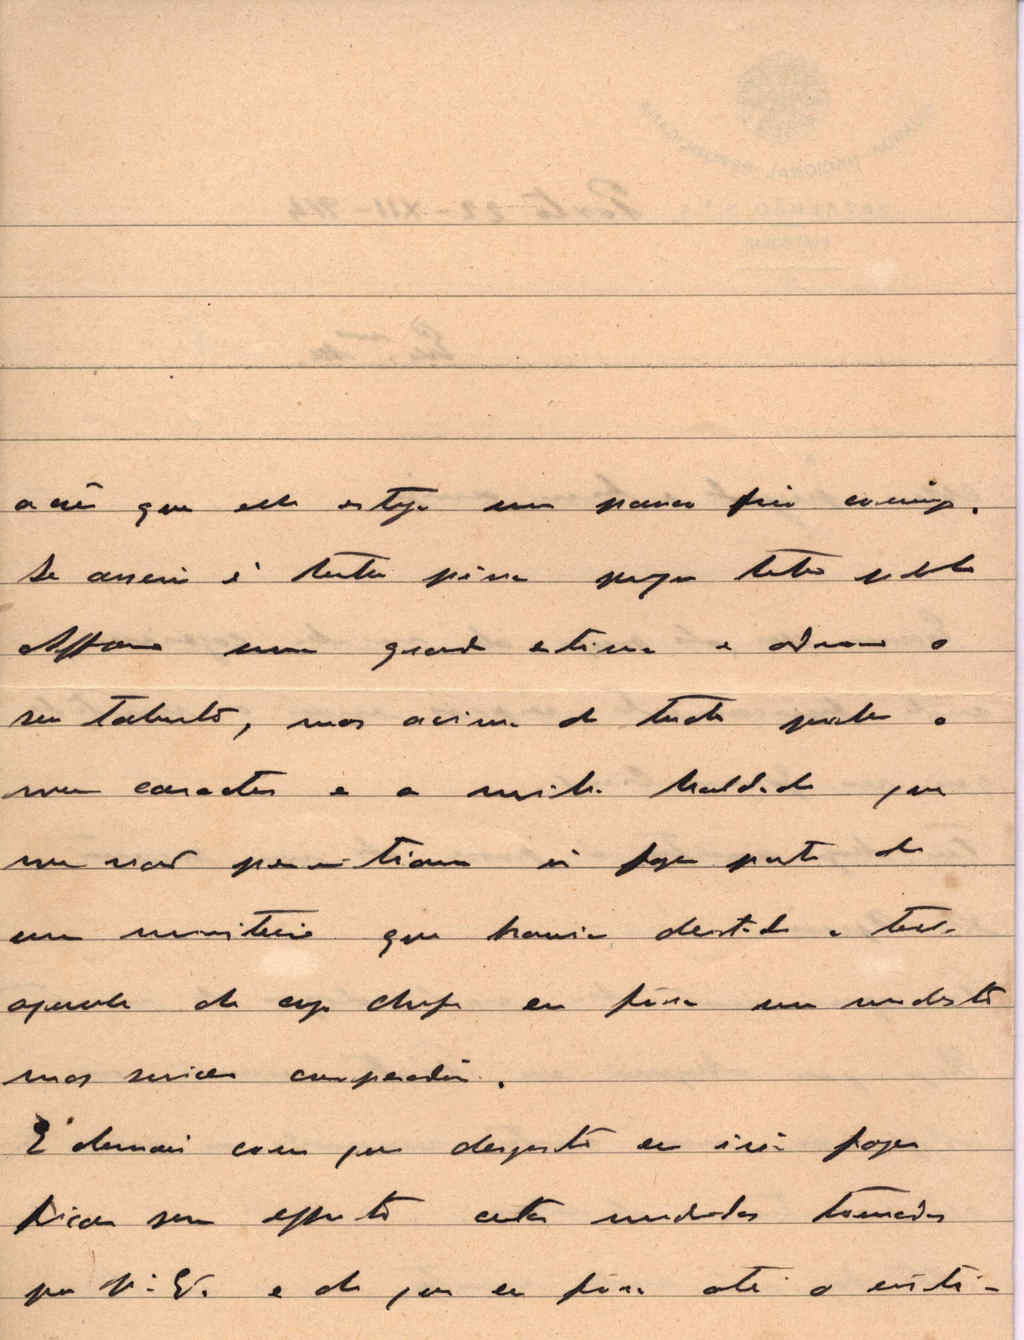 que elle esteja um pouco frio comigo.
Se assim é tenho pena porque tenho pelo
Affonso uma grande estima e admiro o
seu talento, mas acima de tudo prezo o
meu caracter e a minha lealdade que
me não permitiam ir fazer parte de
um ministerio que havia deitado a terra
aquele de cujo chefe eu fôra um modesto
mas sincero cooperador.
E demais com que desgosto eu iria fazer
ficar sem effeito certas medidas tomadas
por V. Ex. e de que eu fôra até o